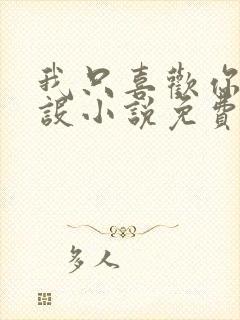 我只喜歡你
設小說免費
多人